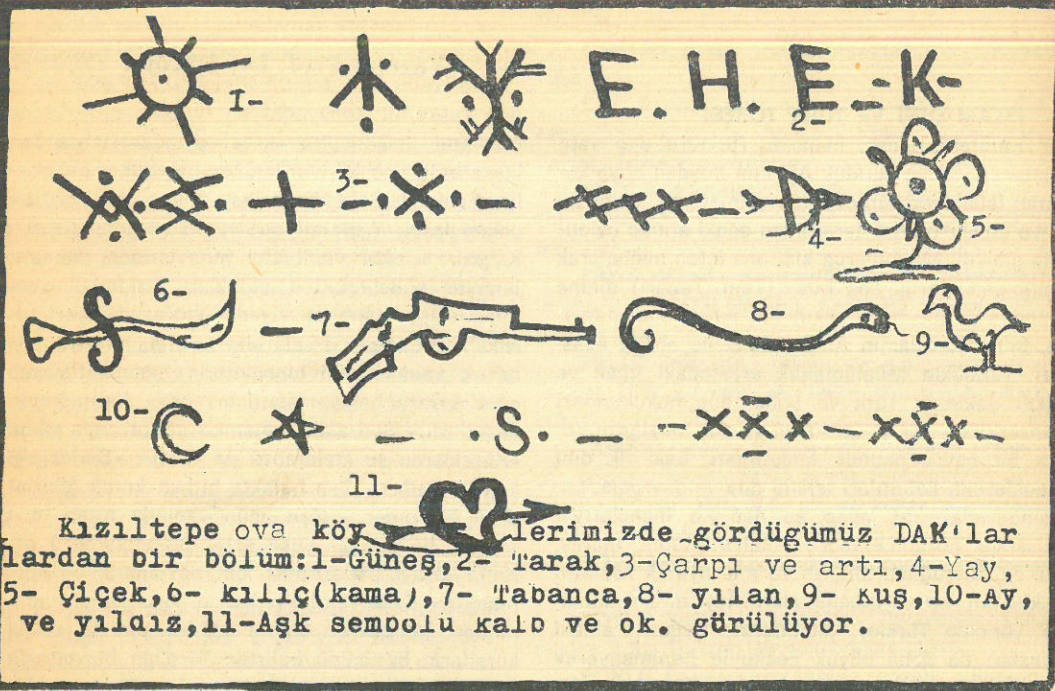 1-
E. H. E - K-
2-
3-
4-
5-
6-
7-
8-
9-
10-
.S.
11-
Kızıltepe ova köylerimizde gördügümüz DAK'lar
lardan bir bölüm:1-Güneş,2- Tarak,3-Çarpı ve artı,4-Yay,
5- Çiçek,6- kılıç(kama),7- Tabanca,8- yılan,9- Kuş,10-Ay,
ve yıldız,11-Aşk sembolü kalp ve ok, görülüyor.